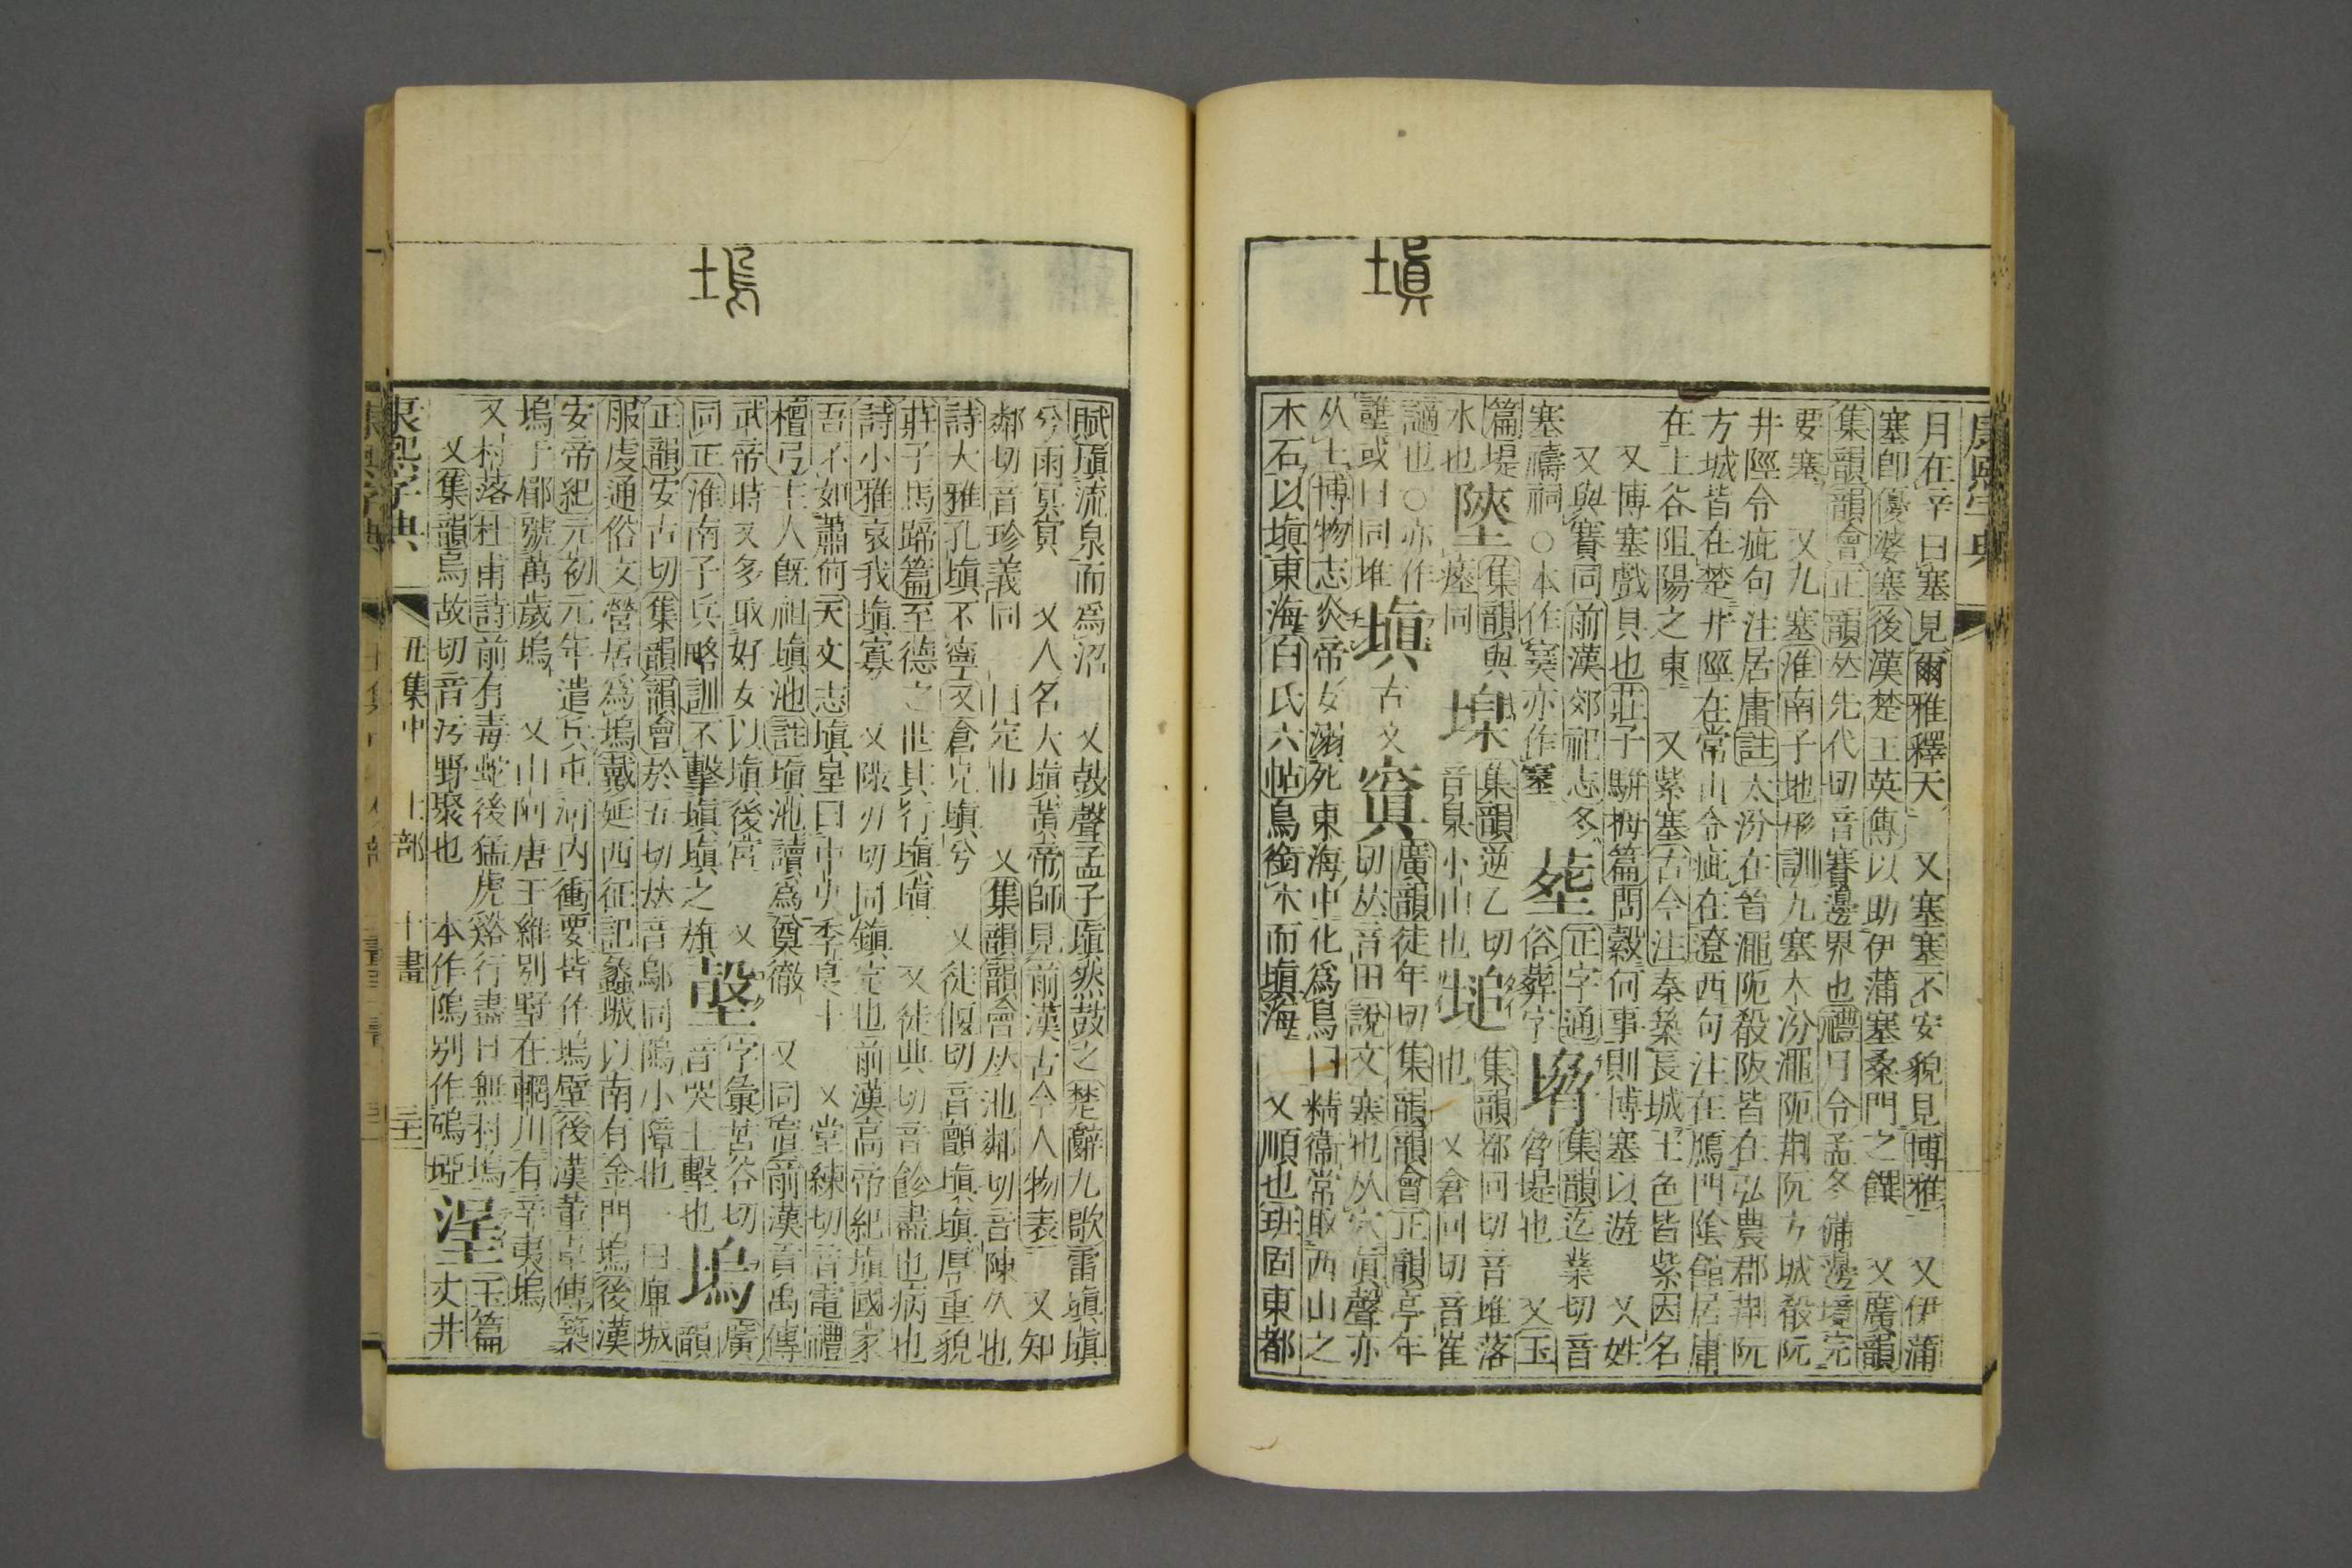 塡
康熙字典
月在辛曰塞見爾雅釋天 又塞塞不安貌見博雅 又伊蒲
塞卽優婆塞後漢楚王英傳以助伊蒲塞桑門之饌 又廣韻
集韻韻會正韻𠀤先代切音賽邊界也禮月令孟冬備邊境完
要塞 又九塞淮南子地形訓九塞太汾澠阨荆阮方城殽阪
井陘令疵句注居庸註太汾在晉澠阨殽阪皆在弘農郡荆阮
方城皆在楚井陘在常山令疵在遼西句注在鴈門陰館居庸
在上谷阻陽之東 又紫塞古今注秦築長城土色皆紫因名
又博塞戲具也莊子騈拇篇問穀何事則博塞以遊 又姓
又與賽同前漢郊祀志冬
塞禱祠○本作𡫳亦作塞
塟
正字通
俗葬字
塉
集韻迄業切音
脅堤也 又玉
篇堤
水也
㙪
集韻與
㙷同
堲
集韻逆乙切
音臬小山也
塠
集韻都回切音堆落
也 又倉回切音崔
謫也○亦作
䜅或曰同堆
塡
古文
窴
廣韻徒年切集韻韻會正韻亭年
切𠀤音田說文塞也从穴眞聲亦
从土博物志炎帝女溺死東海中化爲鳥曰精衞常取西山之
木石以塡東海白氏六帖鳥銜木而塡海 又順也班固東都
塢
賦塡流泉而爲沼 又鼓聲孟子塡然鼓之楚辭九歌雷塡塡
兮雨冥冥 又人名大塡黃帝師見前漢古今人物表 又知
鄰切音珍義同 一曰定也 又集韻韻會𠀤池鄰切音陳久也
詩大雅孔塡不寧又倉兄塡兮 又徒偃切音顫塡塡厚重貌
莊子馬蹄篇至德之世其行塡塡 又徒典切音餮盡也病也
詩小雅哀我塡寡 又陟刃切同鎭定也前漢高帝紀塡國家
吾不如蕭何天文志塡星曰中央季夏土 又堂練切音電禮
檀弓主人旣祖塡池註塡池讀爲奠徹 又同窴前漢貢禹傳
武帝時又多取好女以塡後宮 又
同正淮南子兵略訓不擊塡塡之旗
㱿
字彙苦谷切
音哭土墼也
塢
廣
韻
正韻安古切集韻韻會於五切𠀤音鄔同隖小障也一曰庳城
服虔通俗文營居爲塢戴延西征記蠡城以南有金門塢後漢
安帝紀元初元年遣兵屯河內衝要皆作塢壁後漢董卓傳築
塢于郿號萬歲塢 又山阿唐王維別墅在輞川有辛夷塢
又村落杜甫詩前有毒蛇後猛虎谿行盡日無村塢
又集韻烏故切音汚野聚也 本作隖別作碼埡
塣
玉篇
丈井
康熙字典 丑集中 土部 十畫 二十